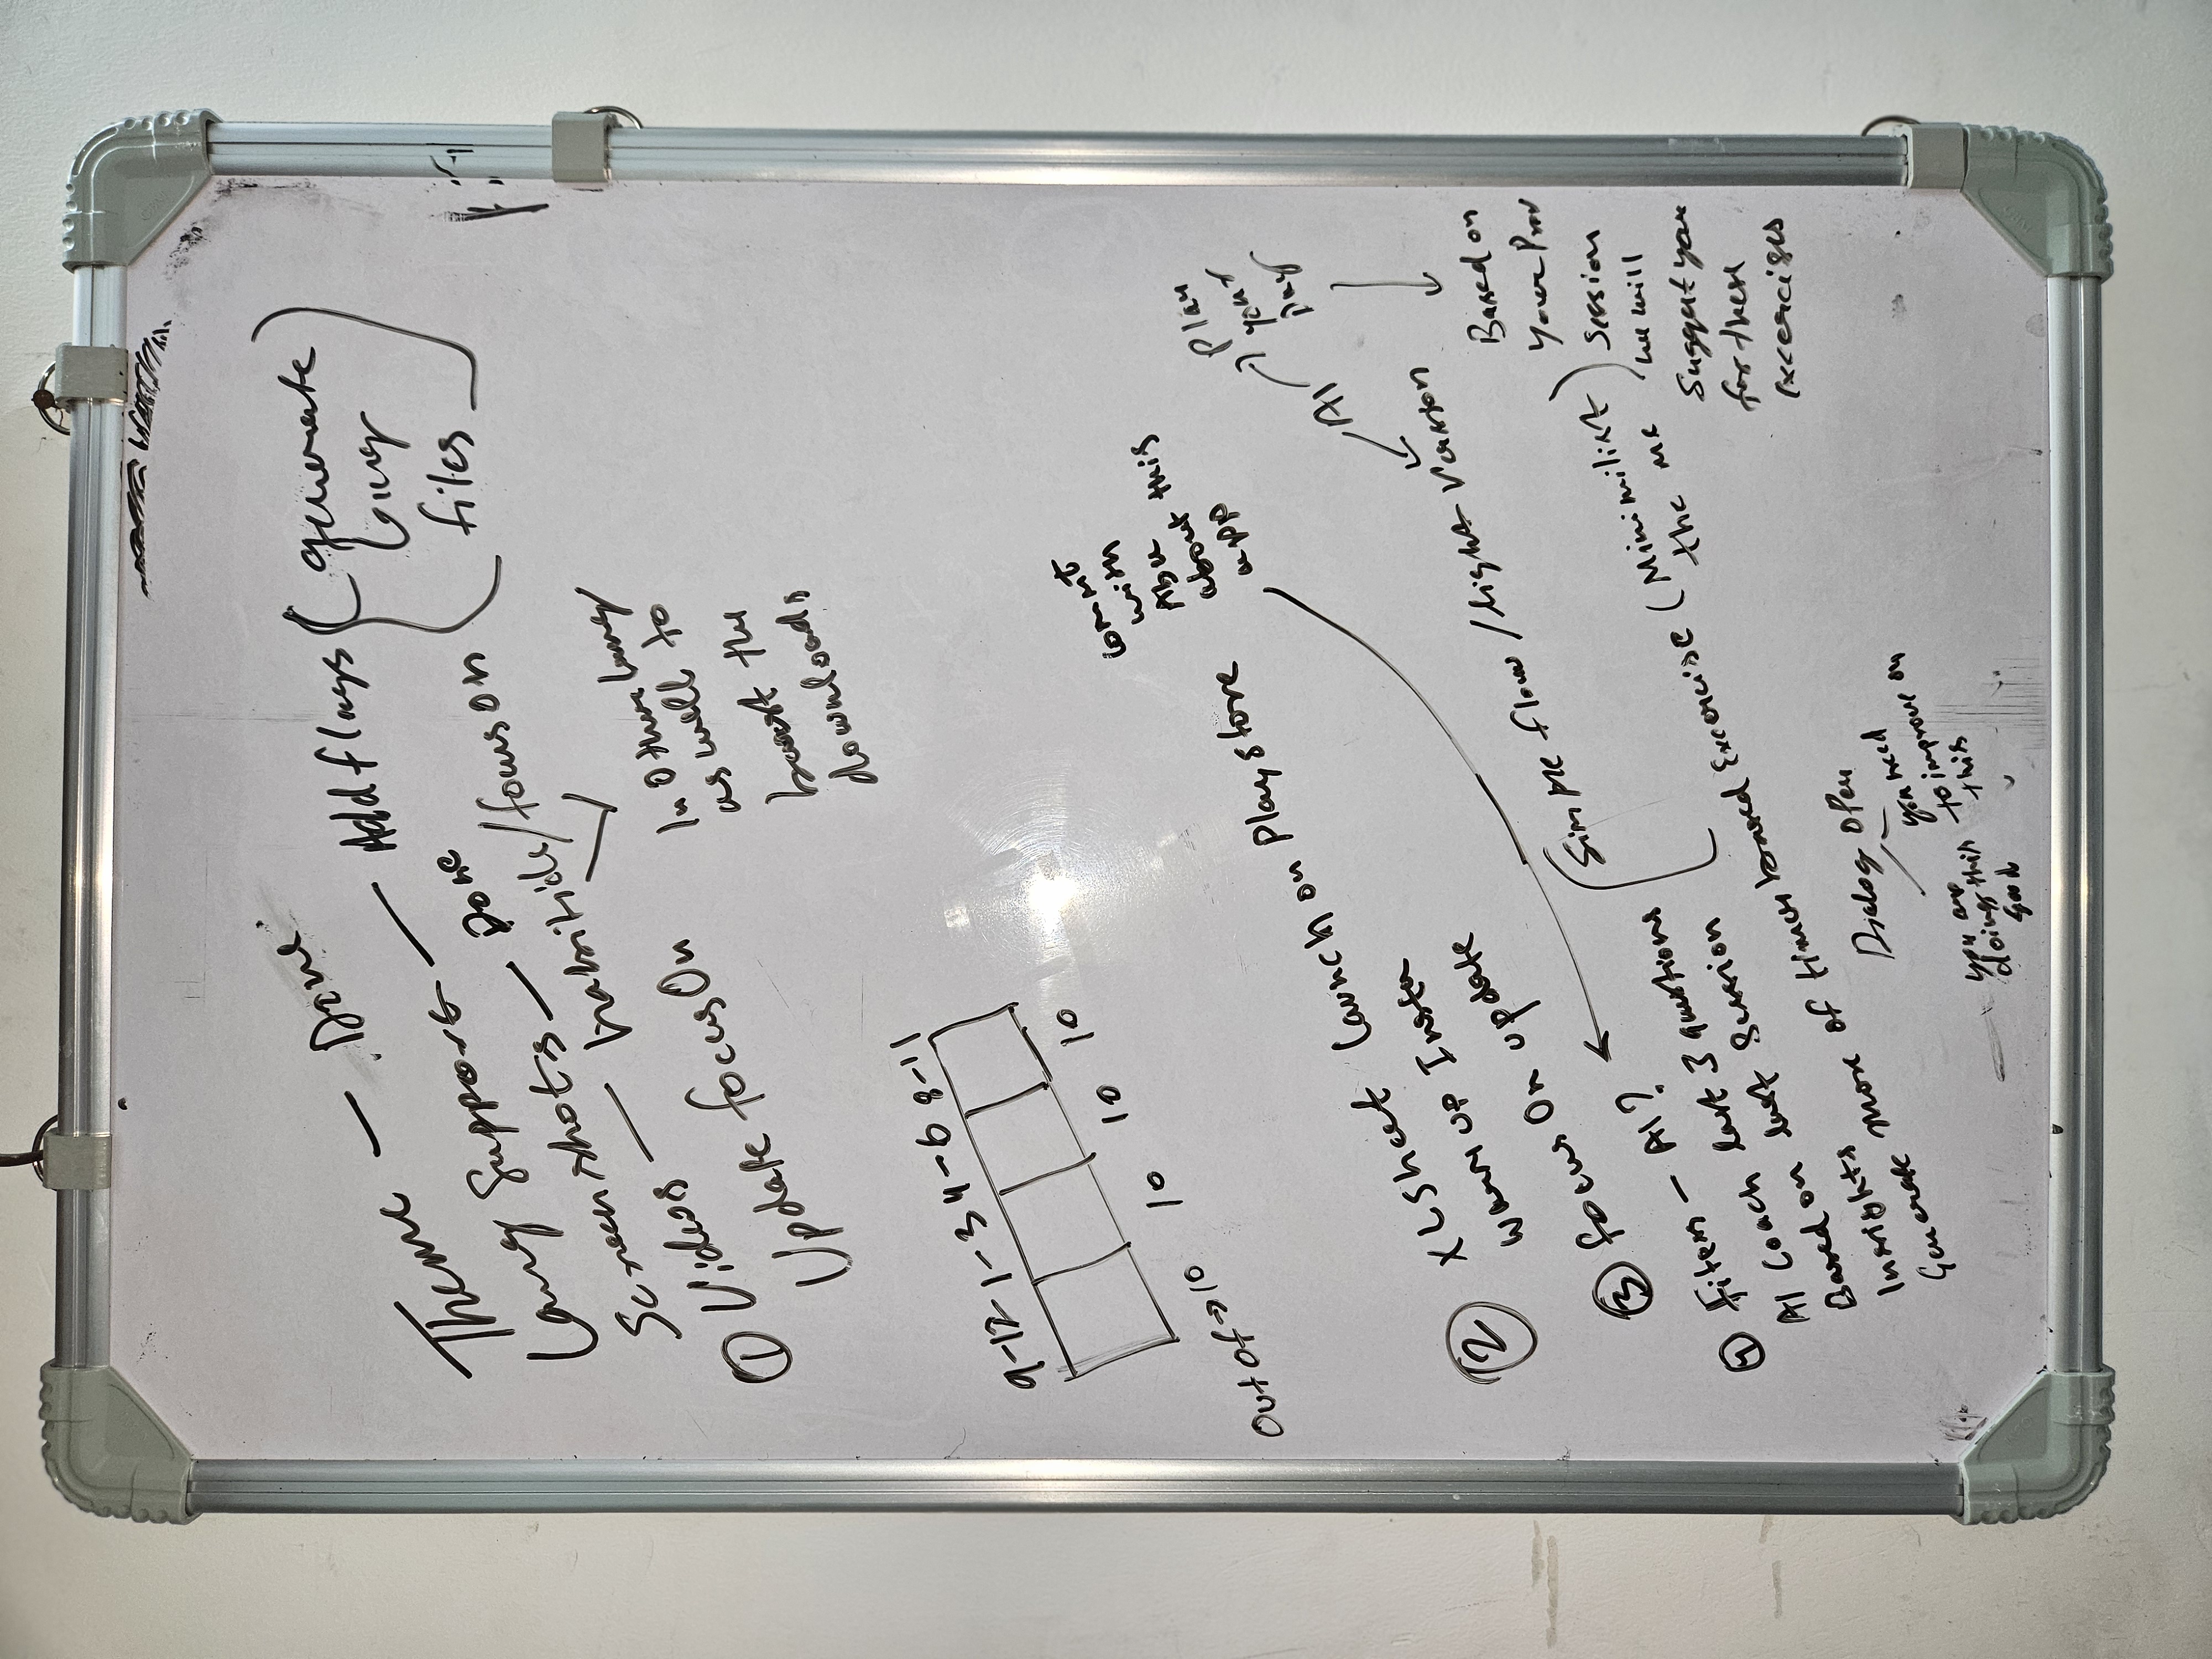 Theme — Done
Lang Support — Add flags (generate
lang
files)
Screenshots — Done
Videos — habit Hill / focus on
In other lang
as well to
boost the
downloads
① Update focus On
9-12 1-3 4-6 8-11
Out of → 10 10 10 10
② XL Sheet launch on play store
Warm up Insta
③ focus On update
Filters - AI?
④ AI Coach last 3 questions
Based on last Session
Insights of times based Exercise
Generate more
(Simple flow / light Version
(Minimilist)
the me
AI
Plan
your
Day
Based on
your Prev
Session
we will
Suggest you
for these
Exercises
with
Also this
about
app
Dialog Open
you need
to improve on
this
you are
doing this
good